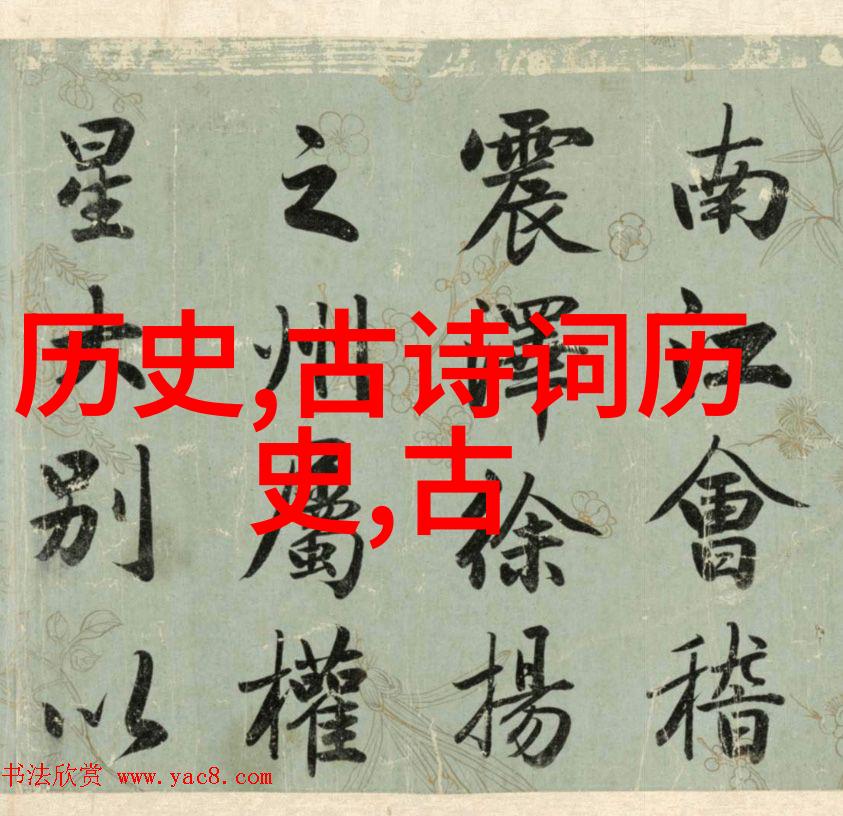 南江會稽
震澤徐揚
之州屬權
星大別以
历史,古诗词历
史,古
书法欣赏 www.yac8.com